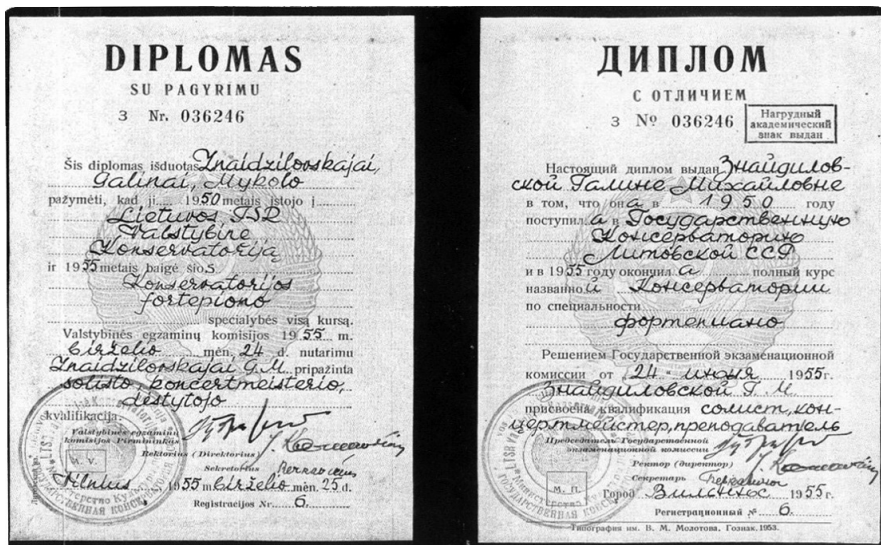 DIPLOMAS
SU PAGYRIMU
З Nr. 036246
Šis diplomas išduotas Znaidzilovskajai,
Galinai, Mykolo
pažymėti, kad ji 1950 metais įstojo į
Lietuvos TSR
Valstybinę
Konservatoriją
ir 1955 metais baigė šios
Konservatorijos
fortepiono
specialybės visą kursą.
Valstybinės egzaminų komisijos 1955 m.
birželio mėn. 24 d. nutarimu
Znaidzilovskajai G. M. pripažinta
solisto, koncertmeisterio,
dėstytojo
kvalifikacija.
Valstybinės egzaminų
komisijos Pirmininkas
Rektorius (Direktorius)
Sekretorius
M. V.
Vilnius 1955 m birželio mėn. 25 d.
Registracijos Nr 6.
ДИПЛОМ
С ОТЛИЧИЕМ
З № 036246
Нагрудный
академический
знак выдан
Настоящий диплом выдан Знайдилов-
ской Галине Михайловне
в том, что она в 1950 году
поступила в Государственную
Консерваторию
Литовской ССР
и в 1955 году окончила полный курс
названной Консерватории
по специальности
фортепиано
Решением Государственной экзаменационной
комиссии от 24 июня 1955 г.
Знайдиловской Г. М
присвоена квалификация солист, кон-
цертмейстер, преподаватель
Председатель Государственной
экзаменационной комиссии
Ректор (директор)
Секретарь
М. П.
Город Вильнюс 1955 г.
Регистрационный № 6.
Типография им. В. М. Молотова, Гознак, 1953.